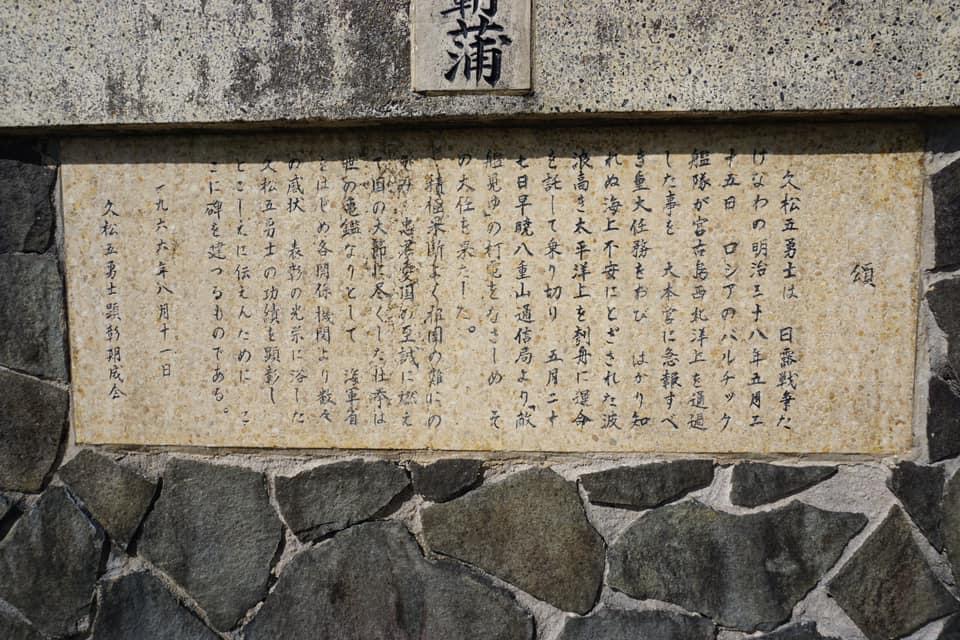 蒲
頌
久松五勇士は 日露戦争た
けなわの明治三十八年五月二
十五日 ロシアのバルチック
艦隊が宮古島西北洋上を通過
した事を 大本営に急報すべ
き重大任務をおび はかり知
れぬ海上不安にとざされた波
浪高き太平洋上を刳舟に運命
を託して乗り切り 五月二十
七日早暁八重山通信局より「敵
艦見ゆ」の打電をなさしめ そ
の大任を果たした。
積極果断よく祖国の難にの
ぞみ 忠君愛国の至誠に燃え
て国の大節に尽くした壮挙は
世の亀鑑なりとして 海軍省
をはじめ各関係機関より数々
の感状 表彰の光栄に浴した
久松五勇士の功績を顕彰し
とこしえに伝えんために こ
こに碑を建つるものである。
一九六六年八月十一日
久松五勇士顕彰期成会